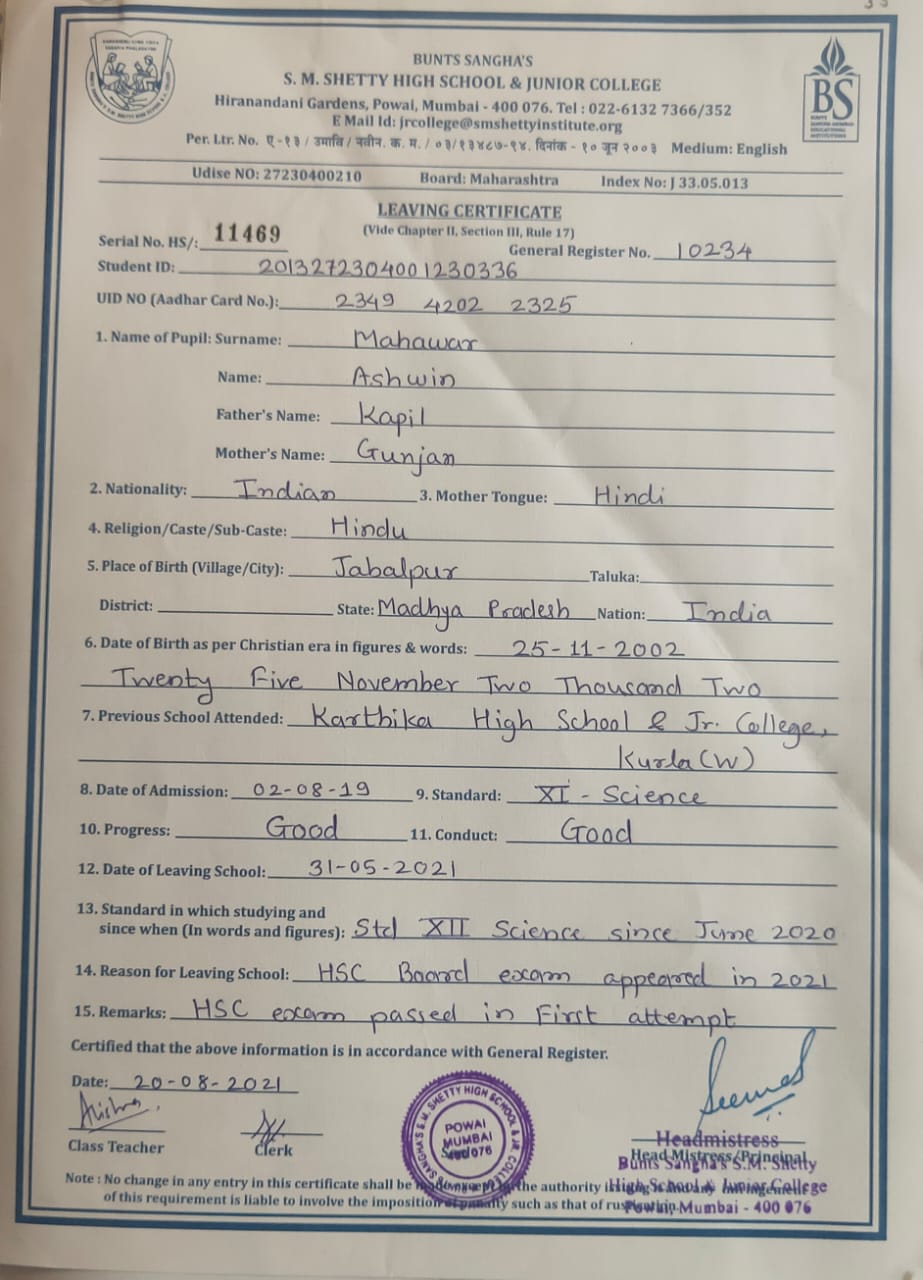 BUNTS SANGHA'S
S. M. SHETTY HIGH SCHOOL & JUNIOR COLLEGE
Hiranandani Gardens, Powai, Mumbai - 400 076. Tel : 022-6132 7366/352
E Mail Id: jrcollege@smshettyinstitute.org
Per. Ltr. No. ए -१३ / उमावि / नवीन. क. म. / ०३/१३४८७-९४. दिनांक - १० जून २००३ Medium: English
Udise NO: 27230400210 Board: Maharashtra Index No: J 33.05.013
BS
LEAVING CERTIFICATE
(Vide Chapter II, Section III, Rule 17)
Serial No. HS/: 11469 General Register No. 10234
Student ID: 2013272304001230336
UID NO (Aadhar Card No.): 2349 4202 2325
1. Name of Pupil: Surname: Mahawar
Name: Ashwin
Father's Name: Kapil
Mother's Name: Gunjan
2. Nationality: Indian 3. Mother Tongue: Hindi
4. Religion/Caste/Sub-Caste: Hindu
5. Place of Birth (Village/City): Jabalpur Taluka:
District: State: Madhya Pradesh Nation: India
6. Date of Birth as per Christian era in figures & words: 25-11-2002
Twenty Five November Two Thousand Two
7. Previous School Attended: Karthika High School & Jr. College,
Kurla (W)
8. Date of Admission: 02-08-19 9. Standard: XI - Science
10. Progress: Good 11. Conduct: Good
12. Date of Leaving School: 31-05-2021
13. Standard in which studying and
since when (In words and figures): Std XII Science since June 2020
14. Reason for Leaving School: HSC Board exam appeared in 2021
15. Remarks: HSC exam passed in First attempt
Certified that the above information is in accordance with General Register.
Date: 20-08-2021
Class Teacher Clerk
POWAI
MUMBAI
400 076
Headmistress
Head Mistress/Principal
Bunts Sangha's S.M. Shetty
High School & Junior College
Powai, Mumbai - 400 076
Note : No change in any entry in this certificate shall be the authority
of this requirement is liable to involve the imposition of penalty such as that of